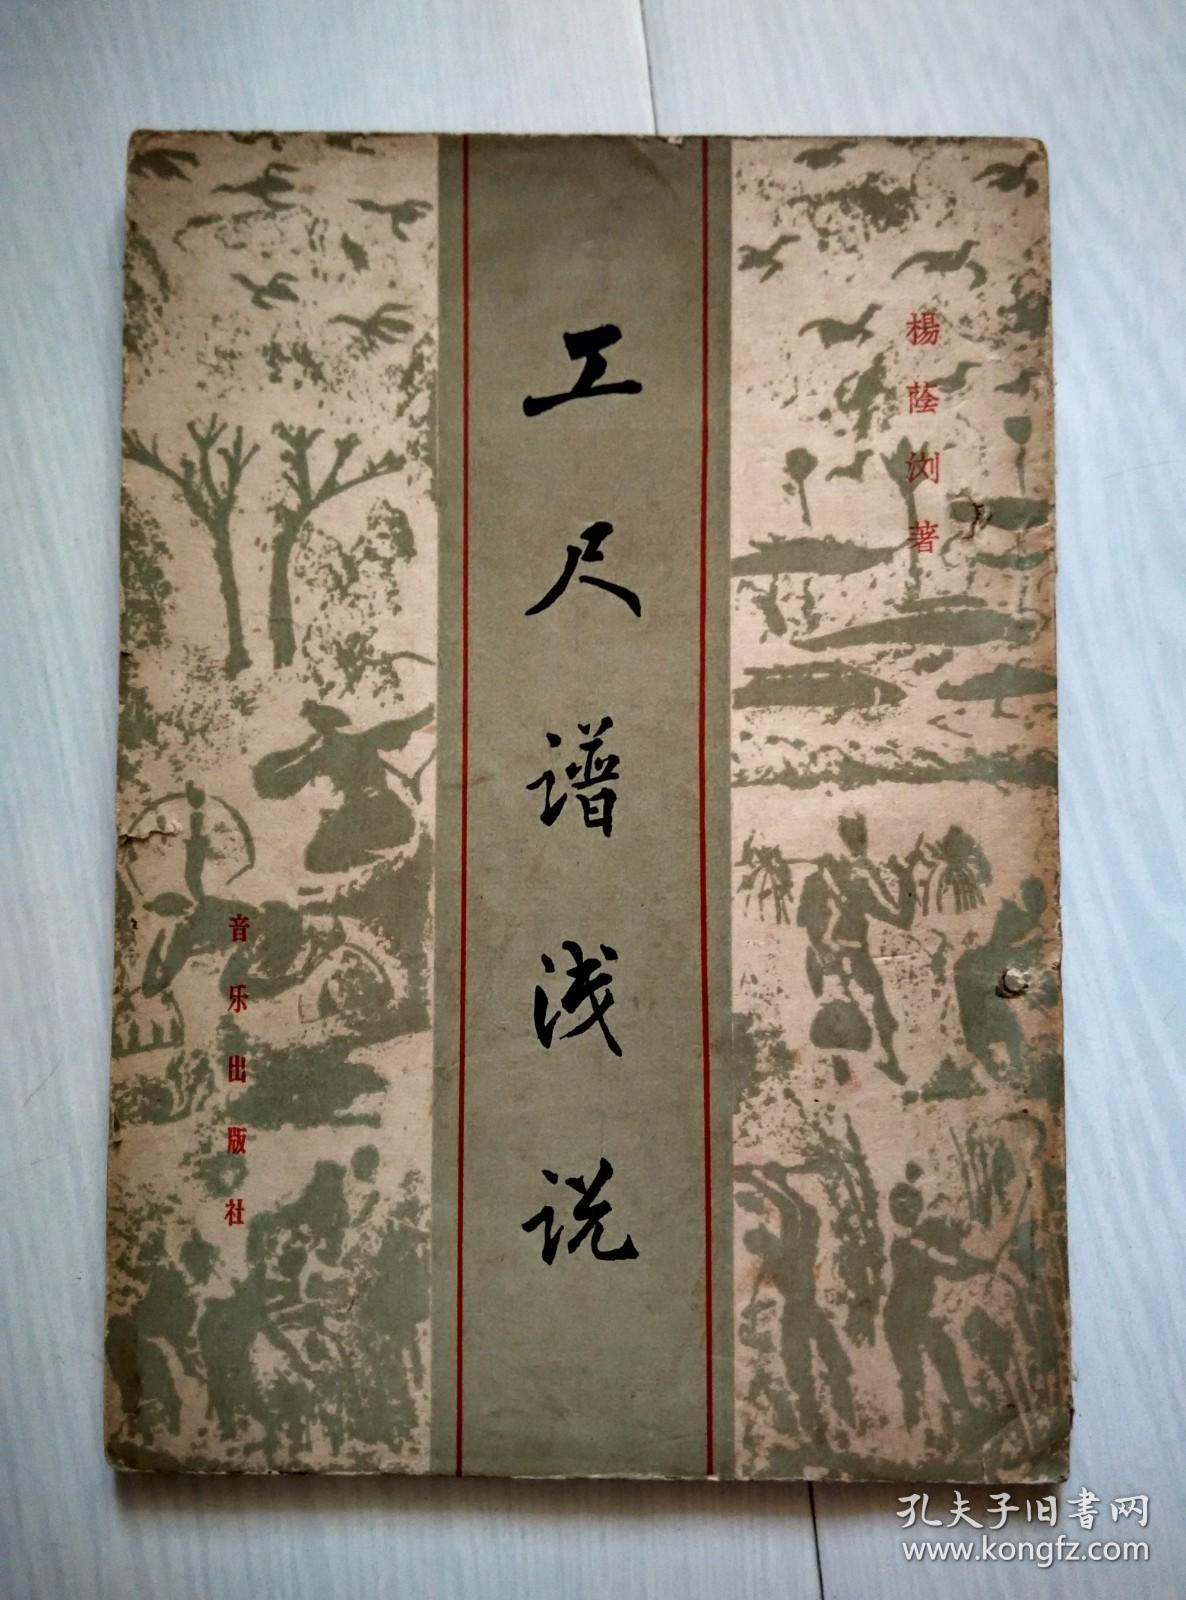 楊蔭浏著
工尺谱浅说
音乐出版社
孔夫子旧書网
www.kongfz.com